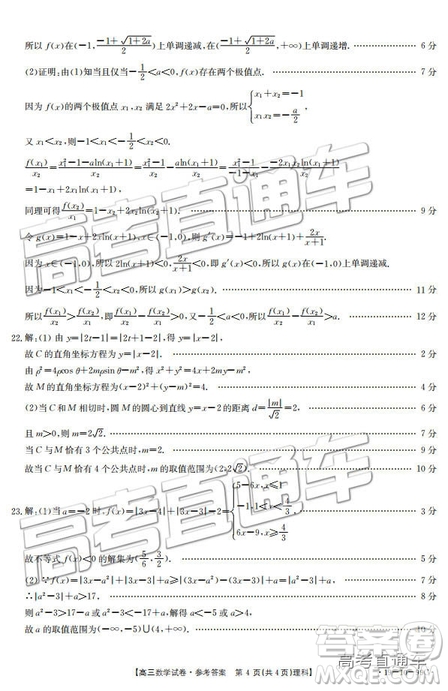 所以 f(x)在(-1, (-1+√(1+2a))/2)上单调递减,在((-1+√(1+2a))/2,+∞)上单调递增. 6分
(2)证明:由(1)知当且仅当-1/2<a<0,f(x)存在两个极值点. 7分
因为 f(x)的两个极值点 x₁,x₂ 满足 2x²+2x-a=0,所以{x₁+x₂=-1 x₁x₂=-a/2.
又 x₁<x₂,则-1<x₁<-1/2<x₂<0.
f(x₁)/x₂=(x₁²-1-aln(x₁+1))/x₂=
=1-x₁+2x₁ln(x₁+1),
同理可得 f(x₂)/x₁=1-x₂+2x₂ln(x₂+1). 9分
令 g(x)=1-x+2xln(x+1),x∈(-1,0),则 g′(x)=-1+2ln(x+1)+2x/(x+1).
因为 x∈(-1,0),所以 2ln(x+1)<0, 2x/(x+1)<0,即 g′(x)<0,所以 g(x)在(-1,0)上单调递减.
因为-1<x₁<-1/2<x₂<0,所以 g(x₁)>g(x₂), 11分
所以 f(x₁)/x₂>f(x₂)/x₁,即 f(x₁)/x₂-f(x₂)/x₁>0,又-1/2<a<0,所以 12分
22.解:(1) 由 y=|2t-1|=|2t+1-2|,得 y=|x-2|.
故 C 的直角坐标方程为 y=|x-2|. 2分
由 ρ²=4ρcos θ+2mρsin θ-m²,得 x²+y²=4x+2my-m²,
故 M 的直角坐标方程为(x-2)²+(y-m)²=4. 4分
(2)当 C 和 M 相切时,圆 M 的圆心到直线 y=x-2 的距离 d=|m|/√2=2, 6分
且 m>0,则 m=2√2. 7分
当 C 与 M 恰有 3 个公共点时,m=2. 9分
故当 C 与 M 恰有 4 个公共点时,m 的取值范围为(2,2√2). 10分
23.解:(1)当 a=-2时,f(x)=|3x-4|+|3x-3|-2= 6x-9,x≥4/3 3分
故不等式 f(x)<0 的解集为(5/6,3/2). 5分
(2)∵f(x)=|3x-a²|+|3x-3|+a≥|(3x-a²)-(3x-3)|+a=|a²-3|+a, 7分
∴|a²-3|+a>17, 8分
则 a²-3>17-a 或 a²-3<a-17,解得 a<-5 或 a>4,
故 a 的取值范围为(-∞,-5)∪(4,+∞). 10分
【高三数学试卷·参考答案 第 4 页(共 4 页)理科】
高考直通车
高考直通车
高考直通车